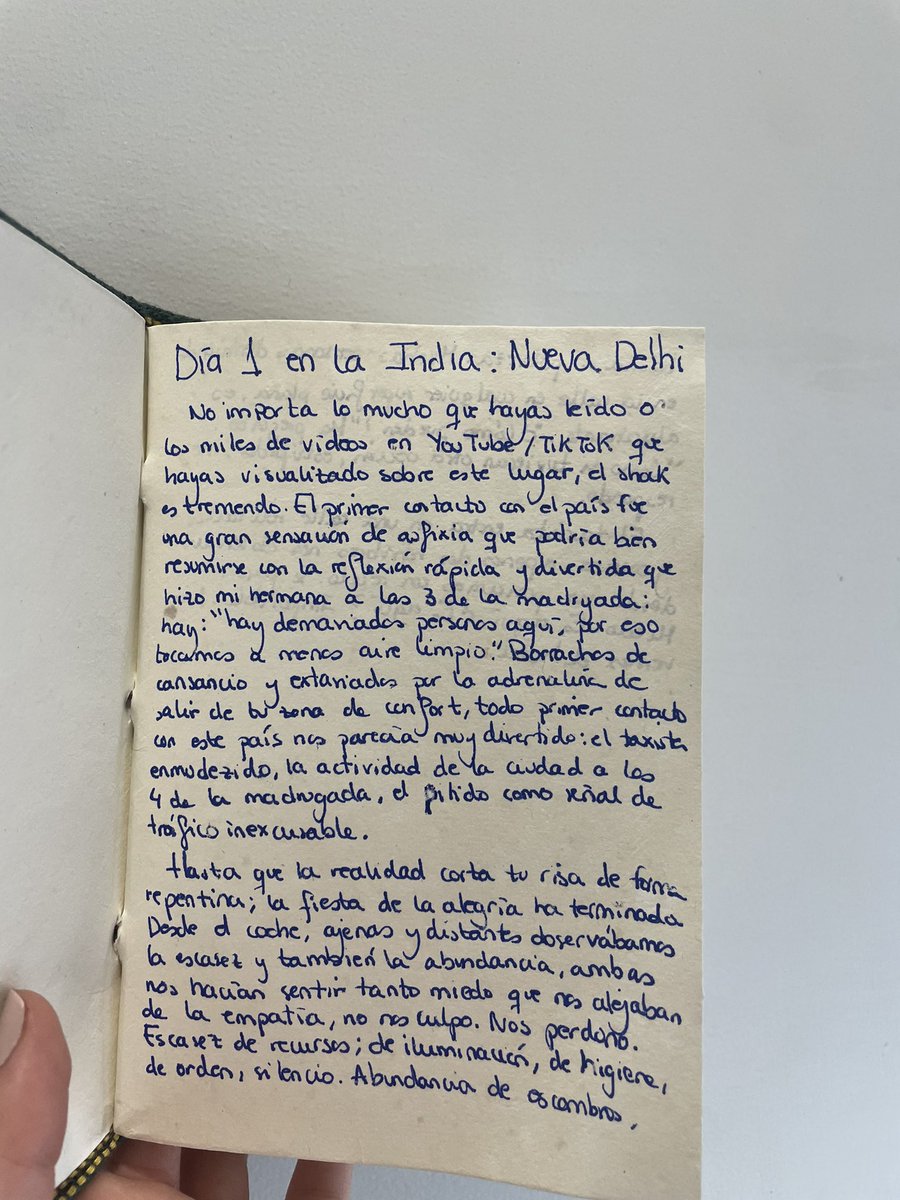 Día 1 en la India: Nueva Delhi
No importa lo mucho que hayas leído o
los miles de vídeos en YouTube/TikTok que
hayas visualizado sobre este lugar, el shock
es tremendo. El primer contacto con el país fue
una gran sensación de asfixia que podría bien
resumirse con la reflexión rápida y divertida que
hizo mi hermana a las 3 de la madrugada:
hay: "hay demasiadas personas aquí, por eso
tocamos a menos aire limpio." Borrachas de
cansancio y extasiadas por la adrenalina de
salir de tu zona de confort, todo primer contacto
con este país nos parecía muy divertido: el taxista
enmudezido, la actividad de la ciudad a las
4 de la madrugada, el pitido como señal de
tráfico inexcusable.
Hasta que la realidad corta tu risa de forma
repentina; la fiesta de la alegría ha terminado
Desde el coche, ajenas y distantes observábamos
la escasez y también la abundancia, ambas
nos hacían sentir tanto miedo que nos alejaban
de la empatía, no nos culpo. Nos perdono.
Escasez de recursos; de iluminación, de higiene,
de orden, silencio. Abundancia de escombros,